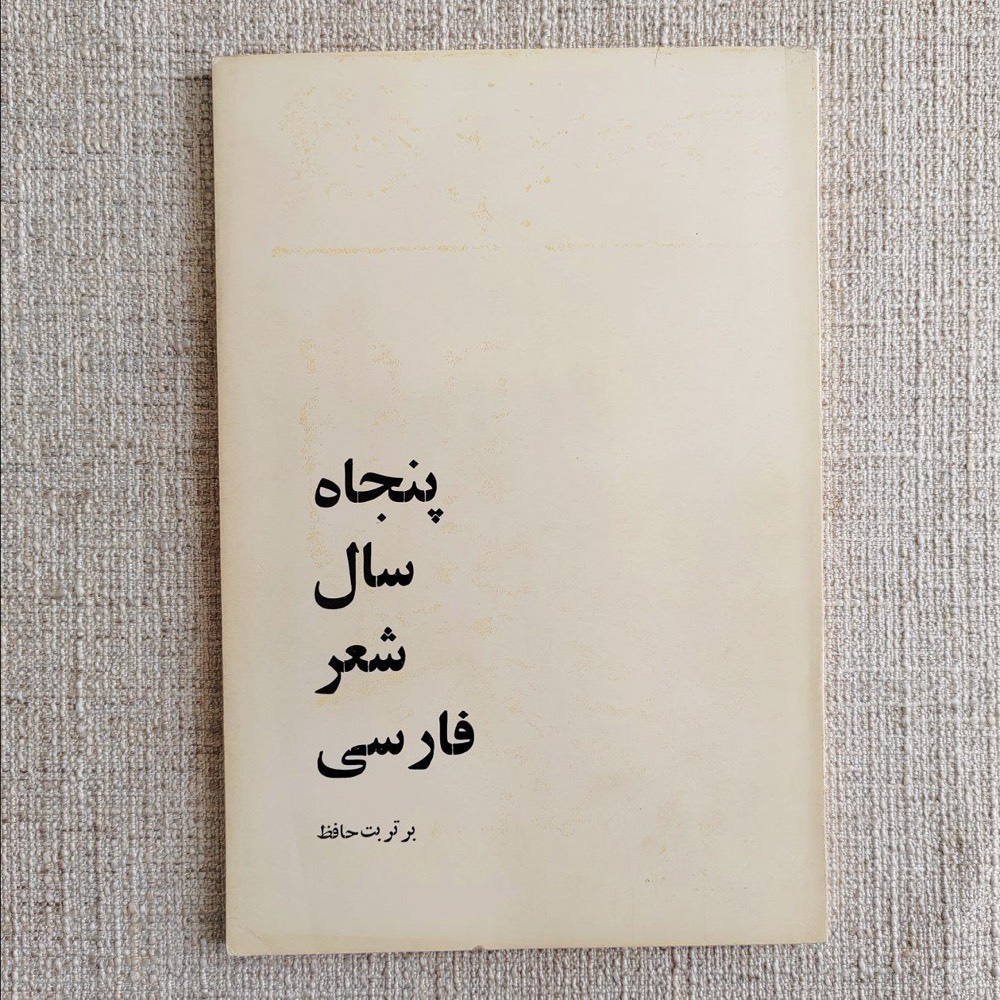 پنجاه
سال
شعر
فارسی
بر تربت حافظ